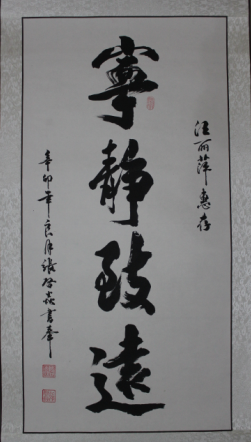 汪丽萍惠存
寧静致遠
辛卯年良月張啓焱書奉